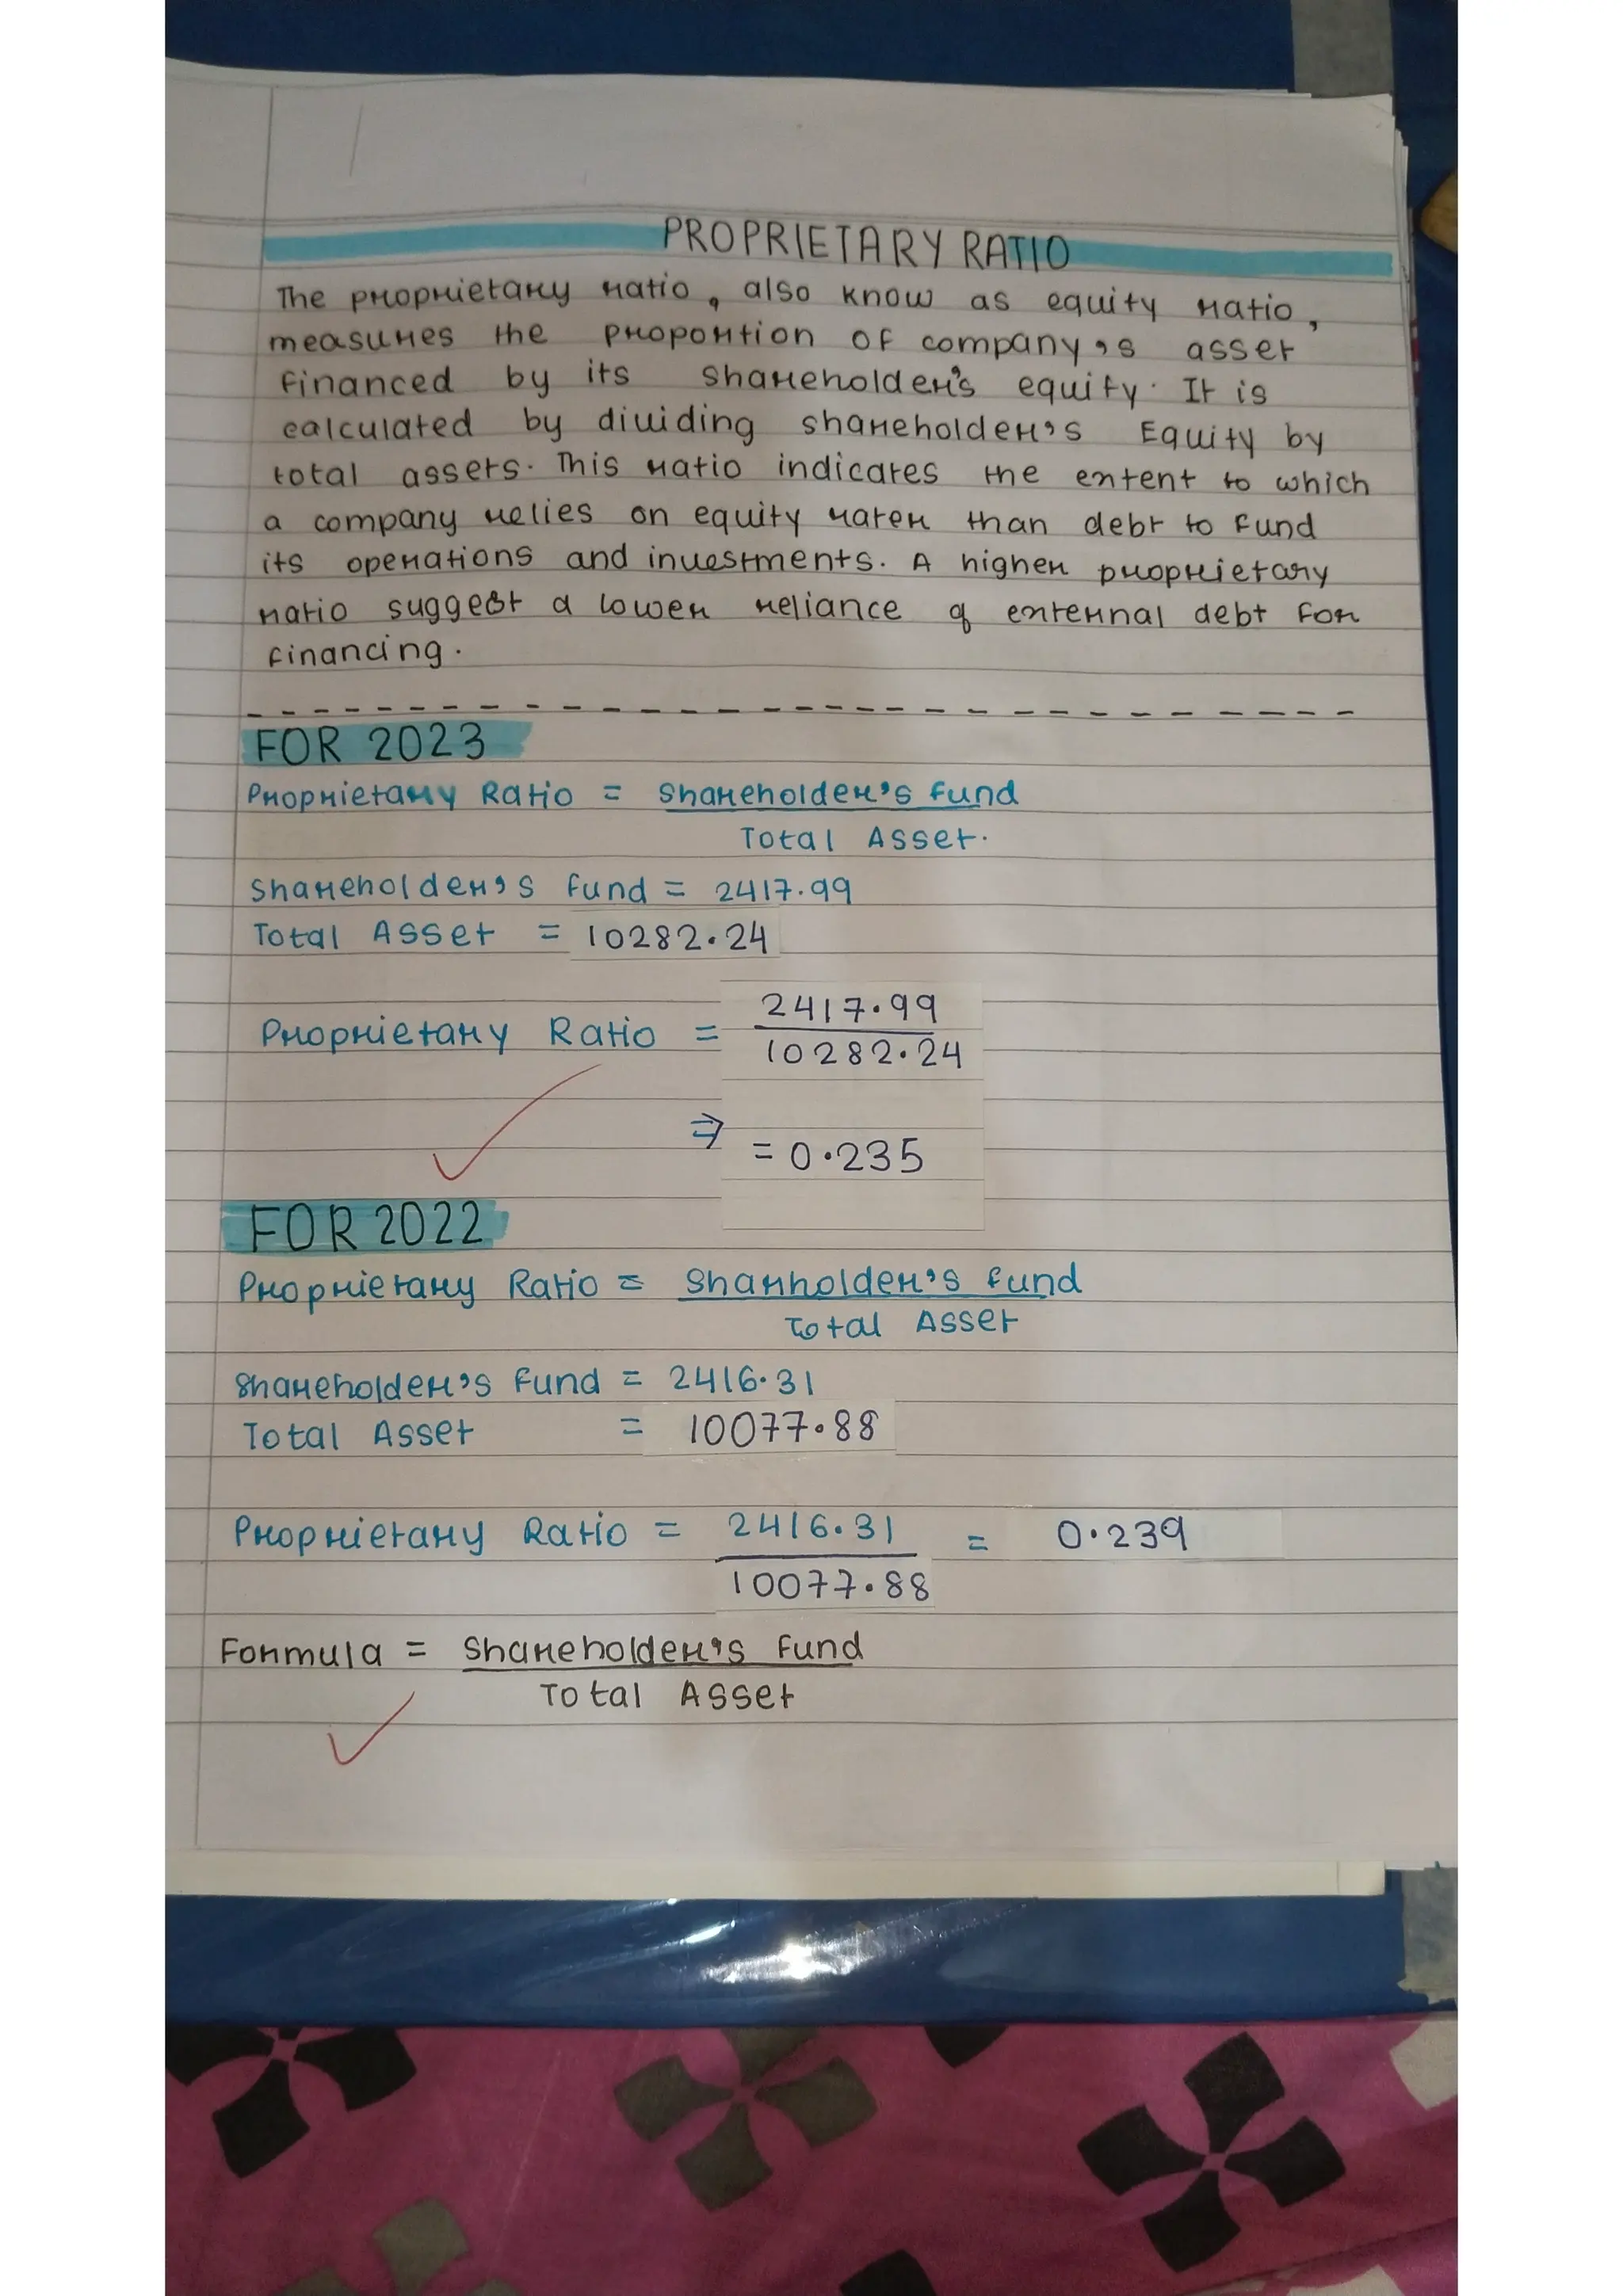 PROPRIETARY RATIO
The proprietary ratio, also know as equity ratio,
measures the proportion of company's asset
financed by its shareholder's equity. It is
calculated by dividing shareholder's Equity by
total assets. This ratio indicates the extent to which
a company relies on equity rater than debt to fund
its operations and investments. A higher proprietary
ratio suggest a lower reliance of external debt for
financing.
FOR 2023
Proprietary Ratio = Shareholder's fund
Total Asset.
Shareholder's fund = 2417.99
Total Asset = 10282.24
Proprietary Ratio = 2417.99
10282.24
⇒ = 0.235
FOR 2022
Proprietary Ratio = Sharholder's fund
Total Asset
Shareholder's fund = 2416.31
Total Asset = 10077.88
Proprietary Ratio = 2416.31 = 0.239
10077.88
Formula = Shareholder's fund
Total Asset